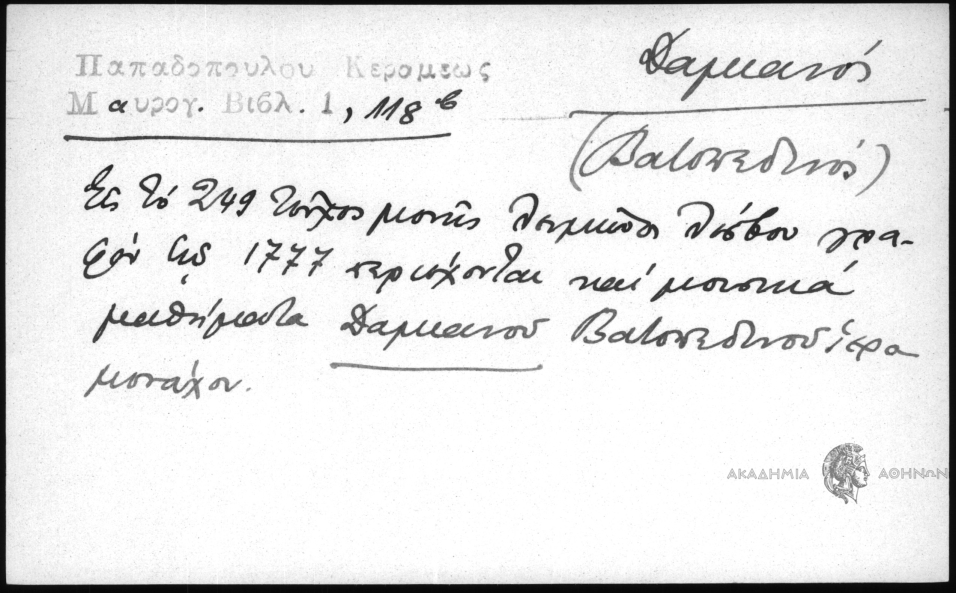 Παπαδοπουλου Κεραμεως
Μαυρογ. Βιβλ. 1, 118 β
Δαμιανός
(Βατοπεδινός)
Εἰς τὸ 249 τεῦχος μονῆς Λειμῶνος Λέσβου γρα-
φὲν εἰς 1777 περιέχονται καὶ μουσικά
μαθήματα Δαμιανοῦ Βατοπεδινοῦ ἱερο
μονάχου.
ΑΚΑΔΗΜΙΑ ΑΘΗΝΩΝ